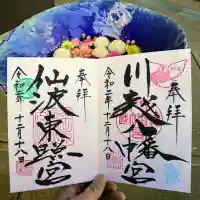 奉拝
川越八幡宮
令和二年十二月十八日
奉拝
仙波東照宮
令和二年十二月十八日